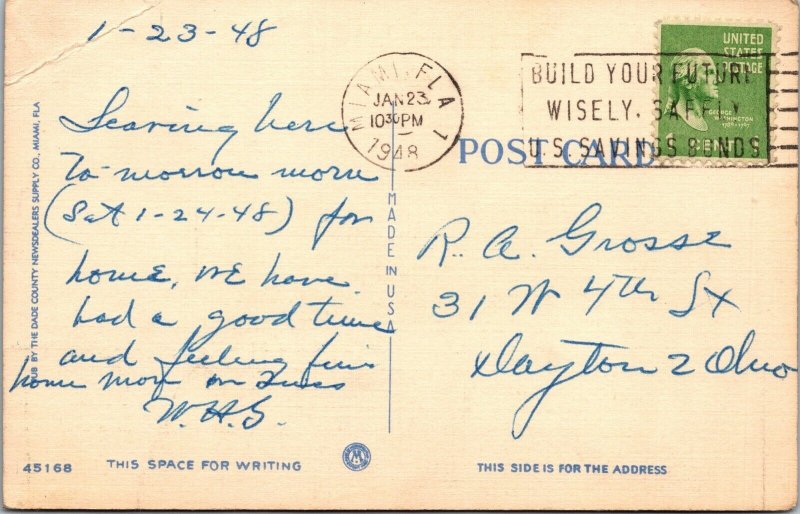 1-23-48
Leaving here
to-morrow morn
(Sat 1-24-48) for
home, we have
had a good time
and feeling fine
home Mon or Tues
W.H.G.
PUB BY THE DADE COUNTY NEWSDEALERS SUPPLY CO., MIAMI, FLA
45168
THIS SPACE FOR WRITING
MADE IN USA
MIAMI, FLA. 1
JAN 23
10 30 PM
1948
BUILD YOUR FUTURE
WISELY, SAFELY
U.S. SAVINGS BONDS
UNITED
STATES
POSTAGE
GEORGE
WASHINGTON
1789-1797
POST CARD
R. A. Grosse
31 W 4th St
Dayton 2 Ohio
THIS SIDE IS FOR THE ADDRESS